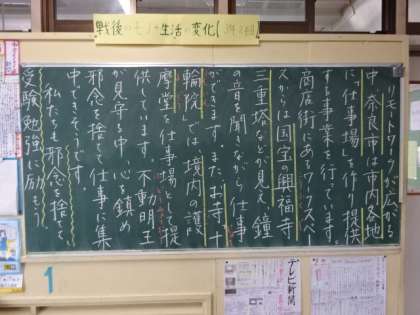 戦後のモノと生活の変化
リモートワークが広がる
中、奈良市は市内各地
に「仕事場」を作り提供
する事業を行っています。
商店街にあるワークスペー
スからは国宝の興福寺
三重塔などが見え、鐘
の音を聞きながら仕事
できます。またお寺「十
輪院」では境内の護
摩堂を仕事場として提
供しています。不動明王
が見守る中、心を鎮め
邪念を捨て仕事に集
中できそうです。
私たちも邪念を捨てて
受験勉強に励もう。
1
テレビ新聞